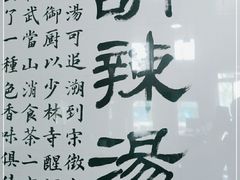 胡辣湯
湯可追溯到宋徽
御厨以少林寺醒
武當山消食茶二
了一種色香味俱